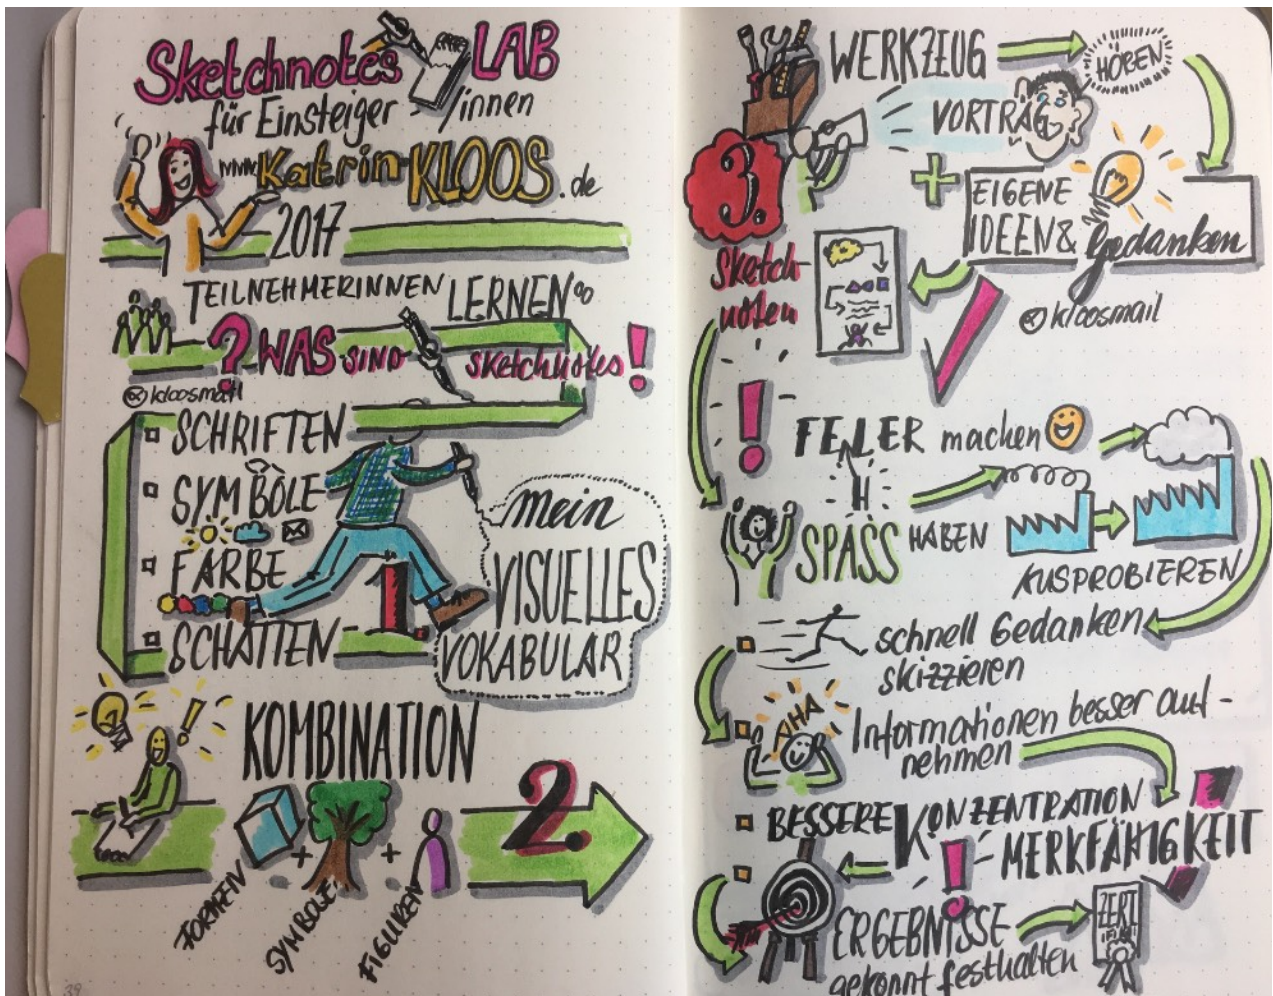 Sketchnotes LAB
für Einsteiger-/innen
www.Katrin-KLOOS.de
2017
TEILNEHMERINNEN LERNEN:
? WAS SIND sketchnotes!
@kloosmail
SCHRIFTEN
SYMBOLE
FARBE
SCHATTEN
1.
mein
VISUELLES
VOKABULAR
KOMBINATION
2.
FORMEN + SYMBOLE + FIGUREN
WERKZEUG
HÖREN
VORTRAG
3.
+
EIGENE
IDEEN &
Gedanken
Sketch-
noten
@kloosmail
!
FELER machen
H
SPASS HABEN
AUSPROBIEREN
schnell Gedanken
skizzieren
AHA
Informationen besser auf-
nehmen
BESSERE KONZENTRATION
! MERKFÄHIGKEIT
ERGEBNISSE
gekonnt festhalten
ZERT